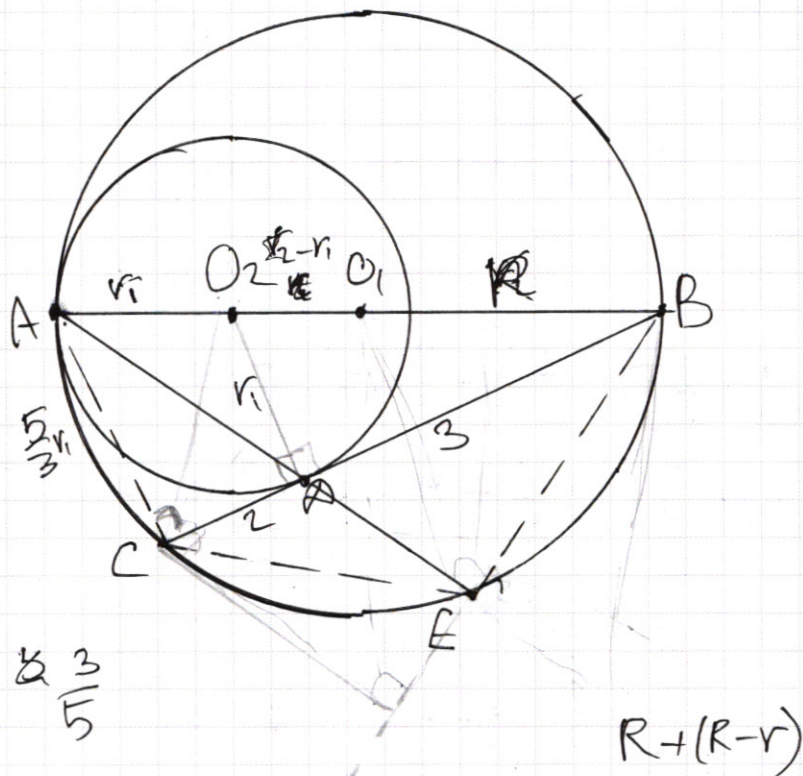 A r₁ O₂ r₂-r₁ O₁ R B
r₁
5/3 r₁
3
2
D
C
E
3/5
R+(R-r)